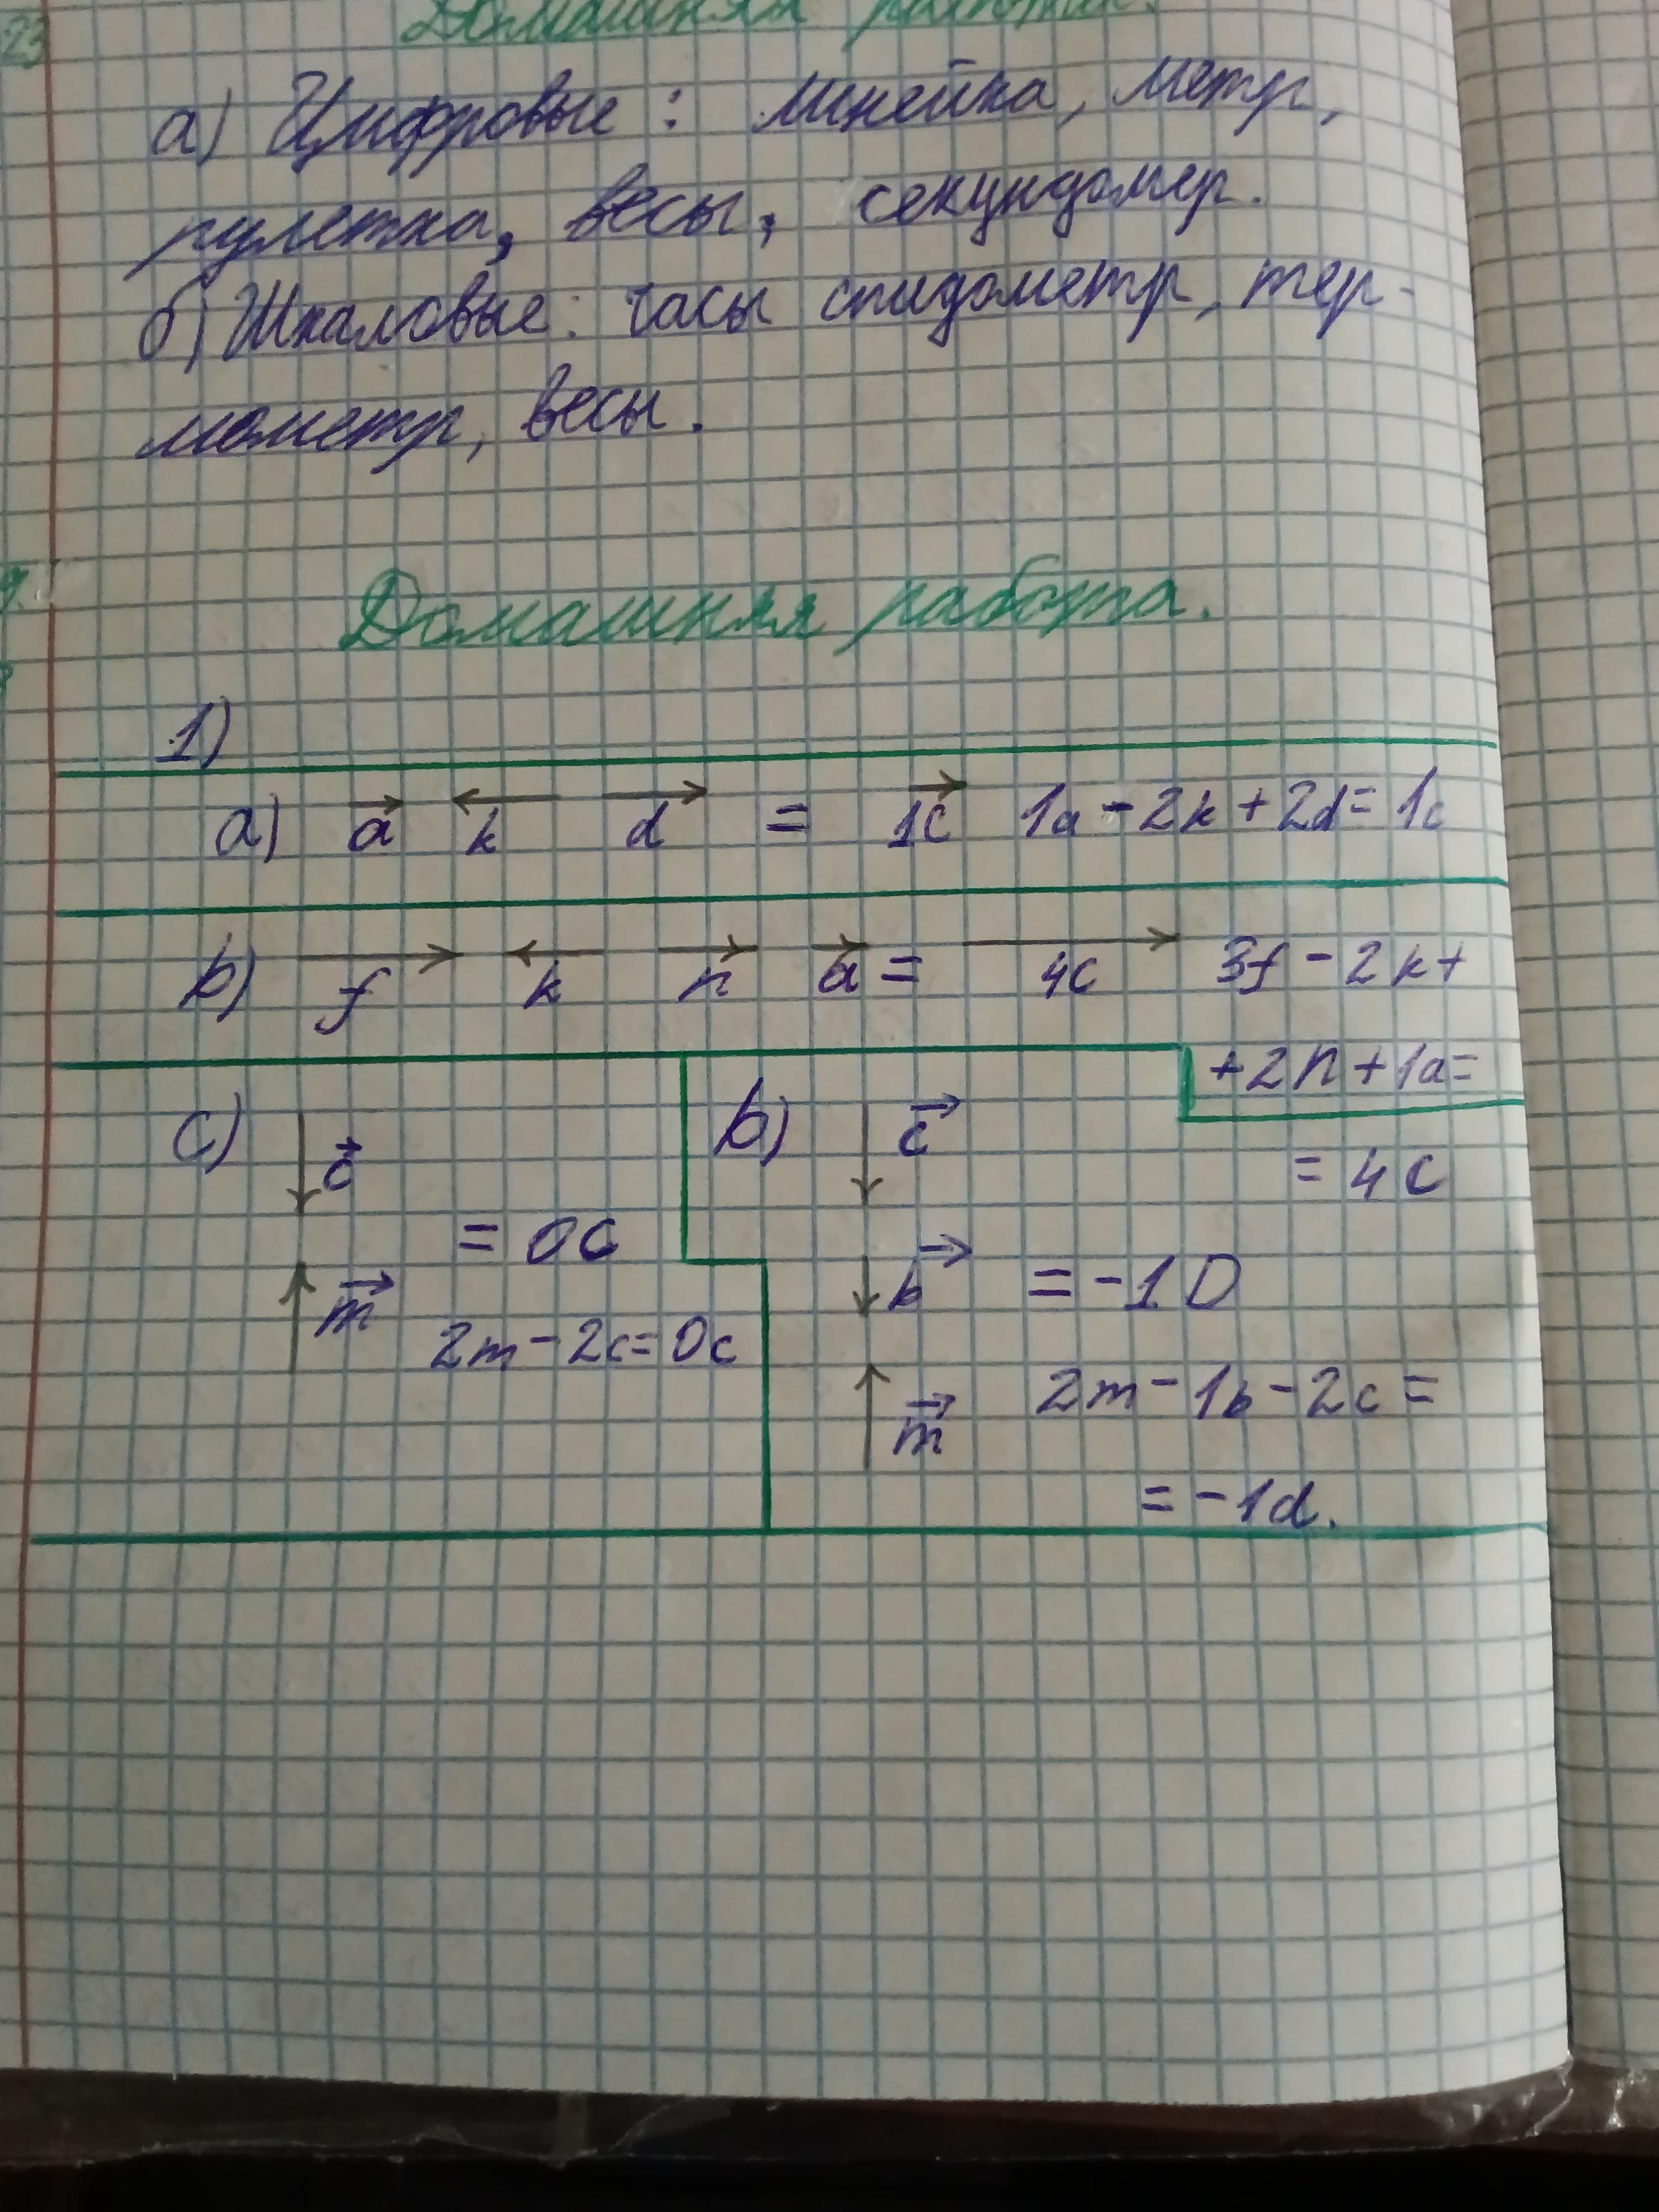 23
Домашняя работа.
а) Цифровые: линейка, метр,
рулетка, весы, секундомер.
б) Шкаловые: часы спидометр, тер-
мометр, весы.
Домашняя работа.
1)
a) a k d = 1c 1a - 2k + 2d = 1c
b) f k n a = 4c 3f - 2k +
+ 2n + 1a =
= 4c
c) c
= 0c
m
2m - 2c = 0c
b) c
b = -1D
m 2m - 1b - 2c =
= -1d.